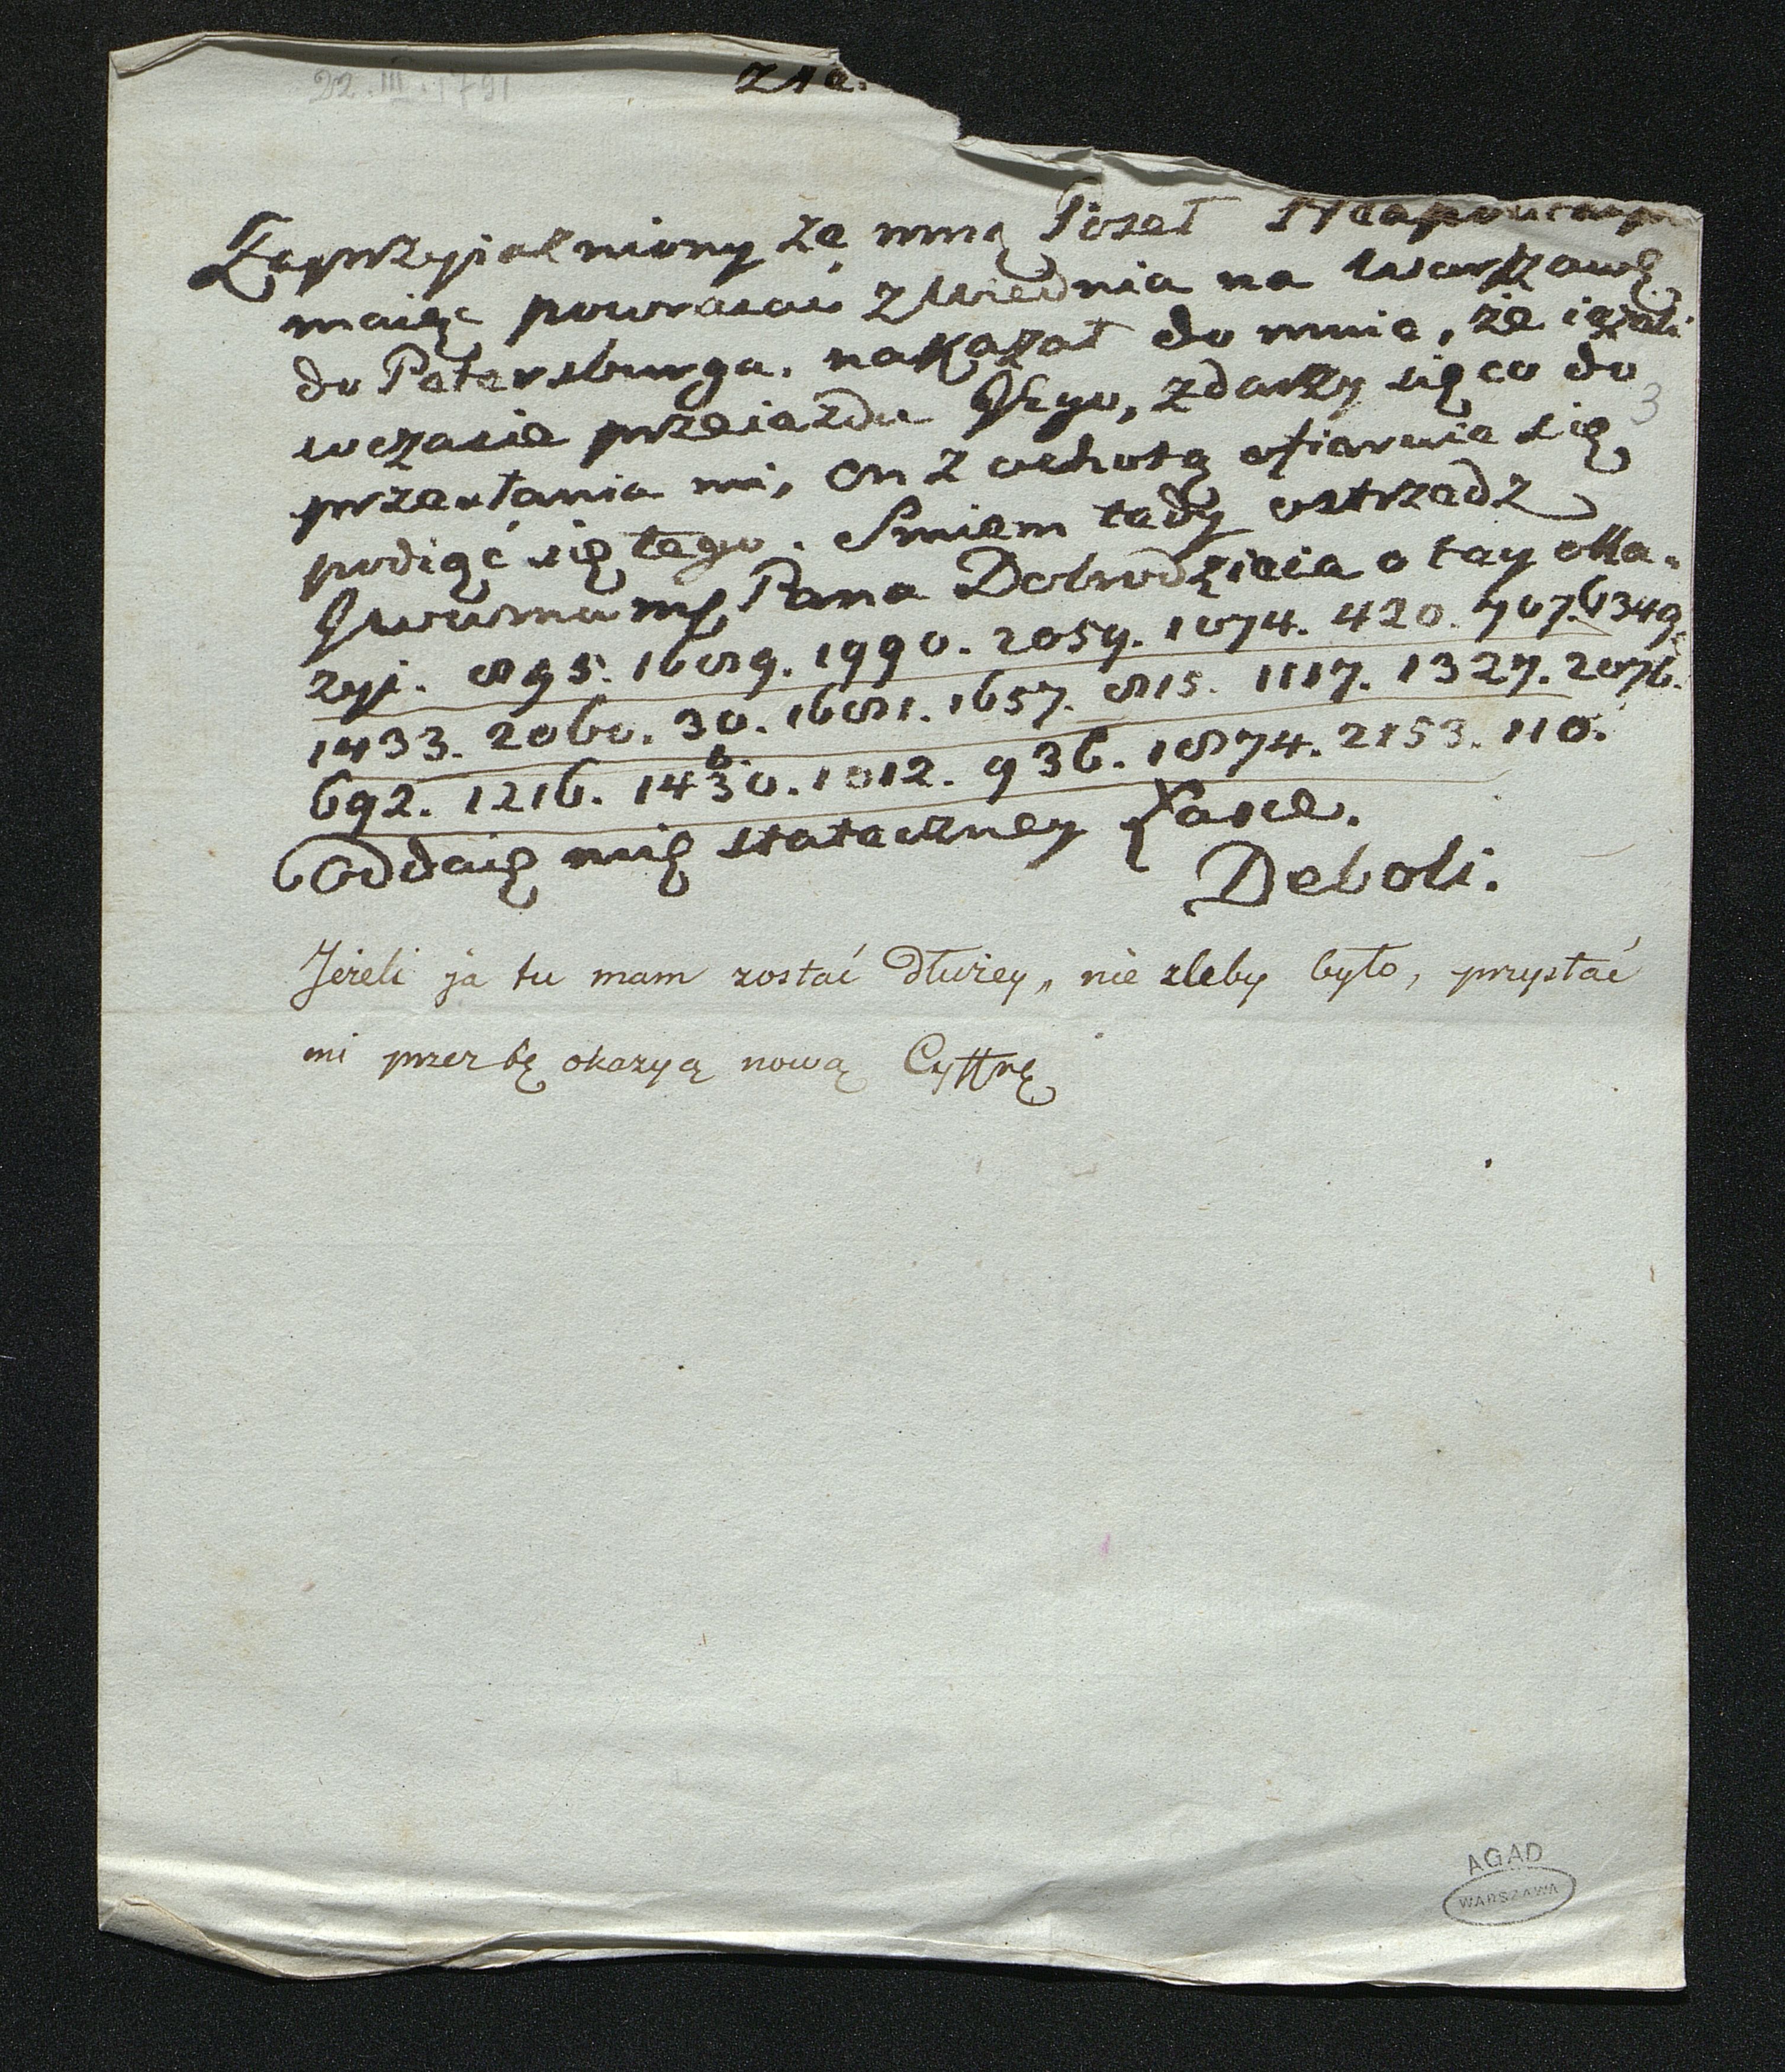 22.III.1791
Zaprzyiaźniony ze mną Poseł Neapolitań
maiąc powracać z Wiednia na Warszawę
do Petersburga. nakazał do mnie, że ieżeli
wczasie przeiazdu Jego, zdarzy się co do
3
przesłania mi, on z ochotą ofiaruie się
podiąć się tego. Smiem tedy ostrzedz
JWWmć Pana Dobrodzieia o tey oka-
zyi. 895. 1689. 1990. 2059. 1874. 420. 707. 6349.
1433. 2060. 30. 1681. 1657. 815. 1117. 1327. 2076.
692. 1216. 1430. 1012. 936. 1874. 2153. 110.
Oddaię mię stateczney Łasce.
Deboli.
Jeżeli ja tu mam zostać dłużey, nie zleby było, przysłać
mi przez tę okazyą nową Cyffrę
AGAD
WARSZAWA